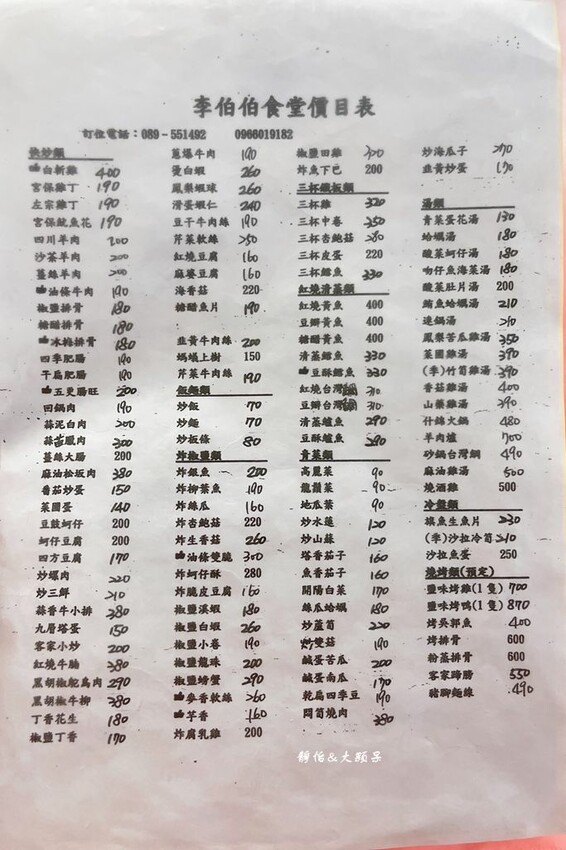 李伯伯食堂價目表
訂位電話：089－551492 0966019182
快炒類
白斬雞 400
宮保雞丁 190
左宗雞丁 190
宮保魷魚花 190
四川羊肉 200
沙茶羊肉 200
薑絲羊肉 200
油條牛肉 190
椒鹽排骨 180
糖醋排骨 180
冰梅排骨 180
四季肥腸 190
干扁肥腸 190
五更腸旺 200
回鍋肉 190
蒜泥白肉 200
蒜苗臘肉 300
薑絲大腸 200
麻油松坂肉 380
番茄炒蛋 150
菜圃蛋 140
豆豉蚵仔 200
蚵仔豆腐 200
四方豆腐 170
炒螺肉 220
炒三鮮 210
蒜香牛小排 380
九層塔蛋 150
客家小炒 200
紅燒牛腩 380
黑胡椒鴕鳥肉 290
黑胡椒牛柳 380
丁香花生 180
椒鹽丁香 170
蔥爆牛肉 190
燙白蝦 260
鳳梨蝦球 260
滑蛋蝦仁 240
豆干牛肉絲 190
芹菜軟絲 250
紅燒豆腐 160
麻婆豆腐 160
海香菇 220
糖醋魚片 190
韭黃牛肉絲 200
螞蟻上樹 150
芹菜牛肉絲 190
飯麵類
炒飯 70
炒麵 70
炒板條 80
炸椒鹽類
炸銀魚 200
炸柳葉魚 190
炸絲瓜 160
炸杏鮑菇 220
炸生香菇 260
油條雙脆 300
炸蚵仔酥 280
炸脆皮豆腐 160
椒鹽溪蝦 180
椒鹽白蝦 260
椒鹽小卷 190
椒鹽龍珠 200
椒鹽螃蟹 290
麥香軟絲 260
芋香 160
炸腐乳雞 200
椒鹽田雞 300
炸魚下巴 200
三杯鐵板類
三杯雞 320
三杯中卷 350
三杯杏鮑菇 280
三杯皮蛋 220
三杯鱈魚 330
紅燒清蒸類
紅燒黃魚 400
豆瓣黃魚 400
糖醋黃魚 400
清蒸鱈魚 330
豆酥鱈魚 330
紅燒台灣鯛 310
豆瓣台灣鯛 310
清蒸鱸魚 290
豆酥鱸魚 290
青菜類
高麗菜 90
龍鬚菜 90
地瓜葉 90
炒水蓮 120
炒山蘇 120
塔香茄子 160
魚香茄子 160
開陽白菜 170
絲瓜蛤蠣 180
炒蘆筍 220
炒雙菇 190
鹹蛋苦瓜 200
鹹蛋南瓜 170
乾扁四季豆 190
悶筍燒肉 380
炒海瓜子 270
韭黃炒蛋 170
湯類
青菜蛋花湯 130
蛤蠣湯 180
酸菜蚵仔湯 180
吻仔魚海菜湯 180
酸菜肚片湯 200
鮪魚蛤蠣湯 210
連鍋湯 210
鳳梨苦瓜雞湯 350
菜圃雞湯 390
(季)竹筍雞湯 390
香菇雞湯 400
山藥雞湯 390
什錦火鍋 480
羊肉爐 700
砂鍋台灣鯛 490
麻油雞湯 500
燒酒雞 500
冷盤類
旗魚生魚片 230
(季)沙拉冷筍 210
沙拉魚蛋 250
燒烤類(預定)
鹽味烤雞(1隻) 700
鹽味烤鴨(1隻) 870
烤吳郭魚 400
烤排骨 600
粉蒸排骨 600
客家蹄膀 550
豬腳麵線 490
靜怡&大顆呆